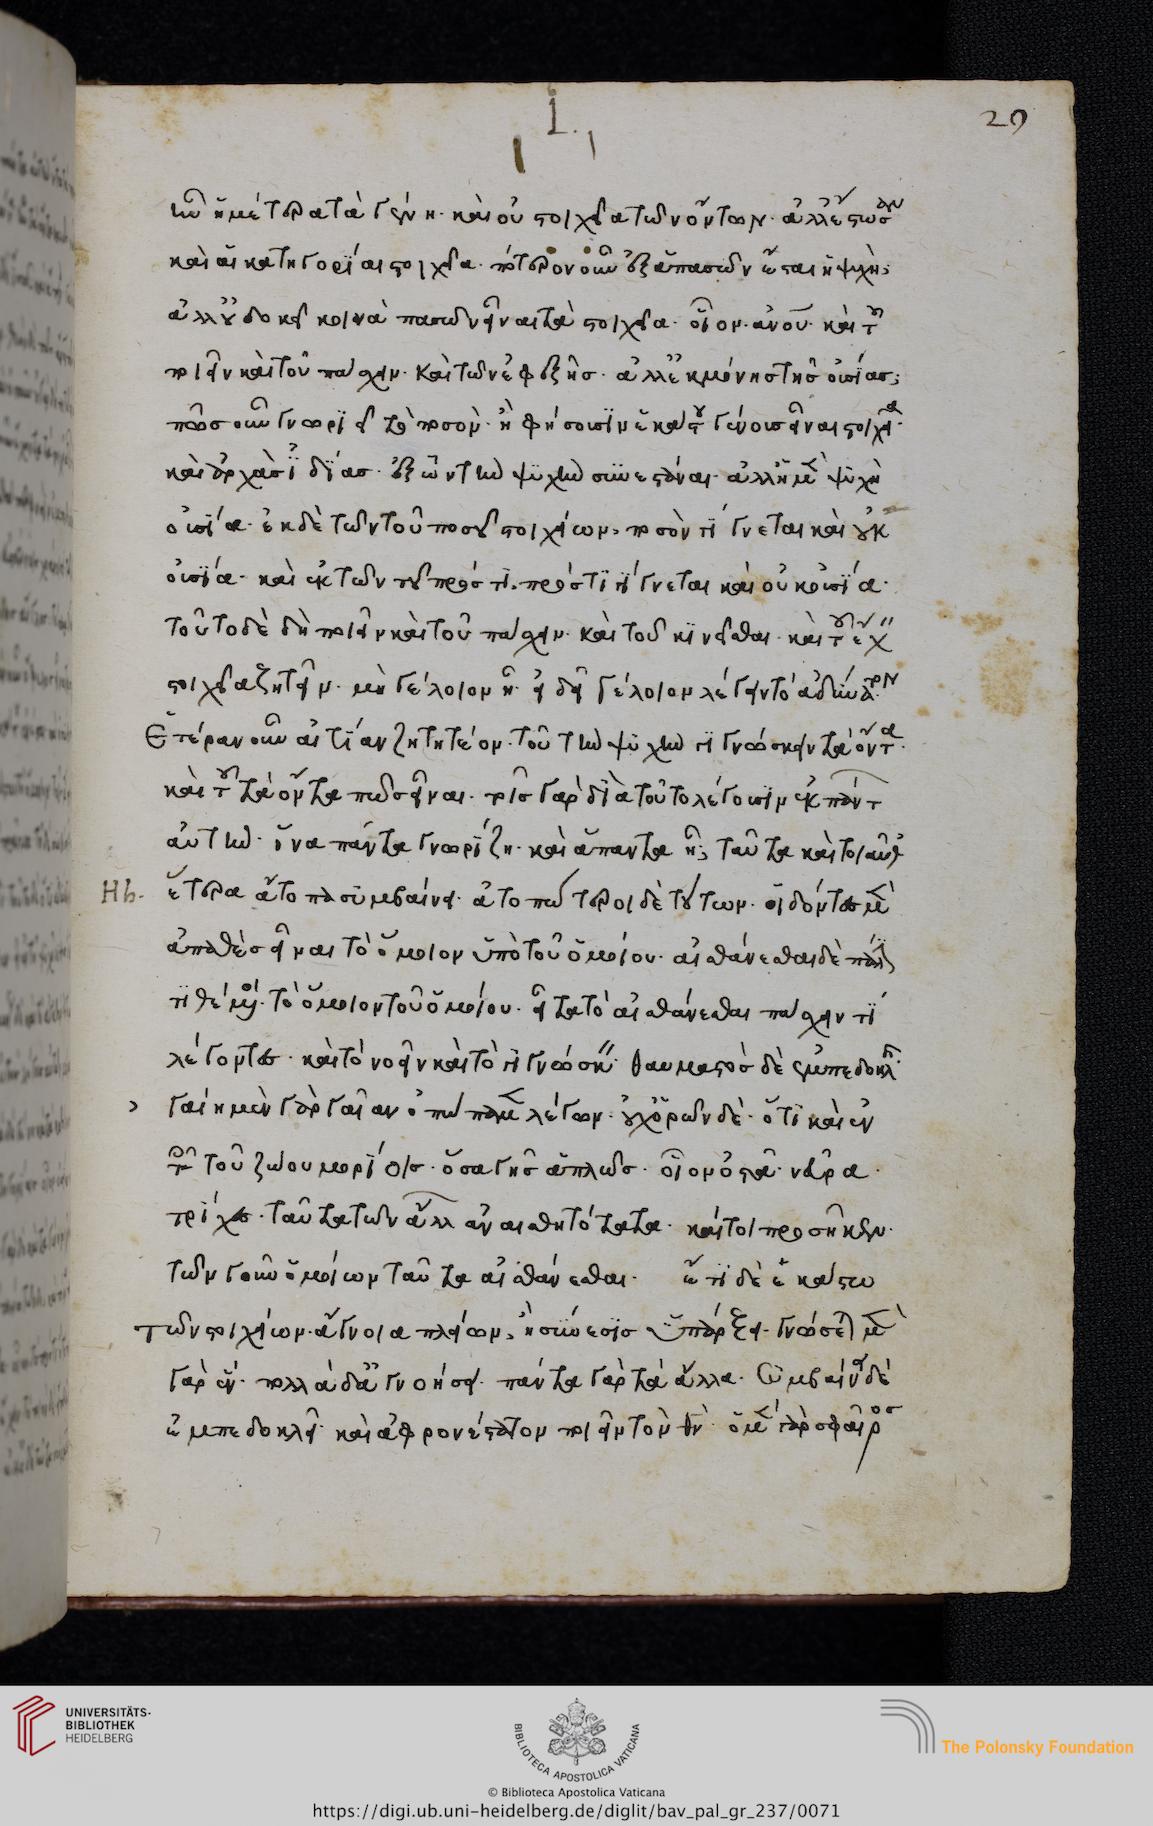 1.
29
ὧν ἡμέτερα τὰ γένη. καὶ οὐ στοιχεῖα τῶν ὄντων. ἀλλ' ἔστωσαν
καὶ αἱ κατηγορίαι στοιχεῖα. πότερον οὖν ἐξ ἁπασῶν ἔσται ἡ ψυχή;
ἀλλ' οὐ δοκεῖ κοινὰ πασῶν εἶναι τὰ στοιχεῖα. οἷον ἀνου. καὶ τοῦ
ποιεῖν καὶ τοῦ πάσχειν. καὶ τῶν ἐφεξῆς. ἀλλ' ἐκ μόνης τῆς οὐσίας;
πῶς οὖν γνωρίζει τὸ ποσόν. ἢ φήσουσιν ἑκάστου γένους εἶναι στοιχεῖα.
καὶ ἀρχὰς ἰδίας. ἐξ ὧν τὴν ψυχὴν συνεστάναι. ἀλλ' ἡ μὲν ψυχὴ
οὐσία. ἐκ δὲ τῶν τοῦ ποσοῦ στοιχείων, ποσόν τι γίνεται καὶ οὐκ
οὐσία. καὶ ἐκ τῶν τοῦ πρός τι, πρός τι γίνεται καὶ οὐκ οὐσία.
τοῦτο δὲ δὴ ποιεῖν καὶ τοῦ πάσχειν. καὶ τοῦ κινεῖσθαι. καὶ τοῦ ἔχειν
στοιχεῖα ζητεῖν. μὴ γέλοιον ᾖ. εἰ δεῖ γέλοιον λέγειν τὸ ἀδύνατον.
Ἑτέραν οὖν αἰτίαν ζητητέον. τοῦ τὴν ψυχὴν γινώσκειν τὰ ὄντα.
καὶ τοῦ τὰ ὄντα πως εἶναι. τίς γὰρ διὰ τοῦτο λέγουσιν ἐκ πάντων
αὐτὴν. ἵνα πάντα γνωρίζη. καὶ ἅπαντα ᾖ; ταῦτα καὶ τοιαῦθ'
Hb. ἕτερα ἄτοπα συμβαίνει. ἀτοπώτεροι δὲ τούτων. οἱ δόντες μὲν
ἀπαθὲς εἶναι τὸ ὅμοιον ὑπὸ τοῦ ὁμοίου. αἰσθάνεσθαι δὲ πάλιν
τιθέμενοι. τὸ ὅμοιον τοῦ ὁμοίου. εἶτα τὸ αἰσθάνεσθαι πάσχειν τι
λέγοντες. καὶ τὸ νοεῖν καὶ τὸ γινώσκειν. θαυμαστὸς δὲ ἐμπεδοκλῆς.
γαίη μὲν γὰρ γαῖαν ὀπώπαμεν λέγων. οὐχ ὁρῶν δὲ. ὅτι καὶ ἐν
τοῖς τοῦ ζώου μορίοις. ὅσα γῆς ἁπλῶς. οἷον ὀστᾶ. νεῦρα.
τρίχες. ταῦτα τῶν ἄλλων ἀναισθητότατα. καίτοι προσῆκεν.
τῶν γοῦν ὁμοίων ταῦτα αἰσθάνεσθαι. ἔτι δὲ ἑκάστω
τῶν στοιχείων. ἄγνοια πλείων, ἢ σύνεσις ὑπάρξει. γνώσεται μὲν
γὰρ ἕν. πολλὰ δ' ἀγνοήσει. πάντα γὰρ τὰ ἄλλα. συμβαίνει δὲ
ἐμπεδοκλεῖ. καὶ ἀφρονέστατον ποιεῖν τὸν θν. ὁ μὲν γὰρ σφαῖρος
UNIVERSITÄTS-
BIBLIOTHEK
HEIDELBERG
BIBLIOTECA APOSTOLICA VATICANA
The Polonsky Foundation
© Biblioteca Apostolica Vaticana
https://digi.ub.uni-heidelberg.de/diglit/bav_pal_gr_237/0071